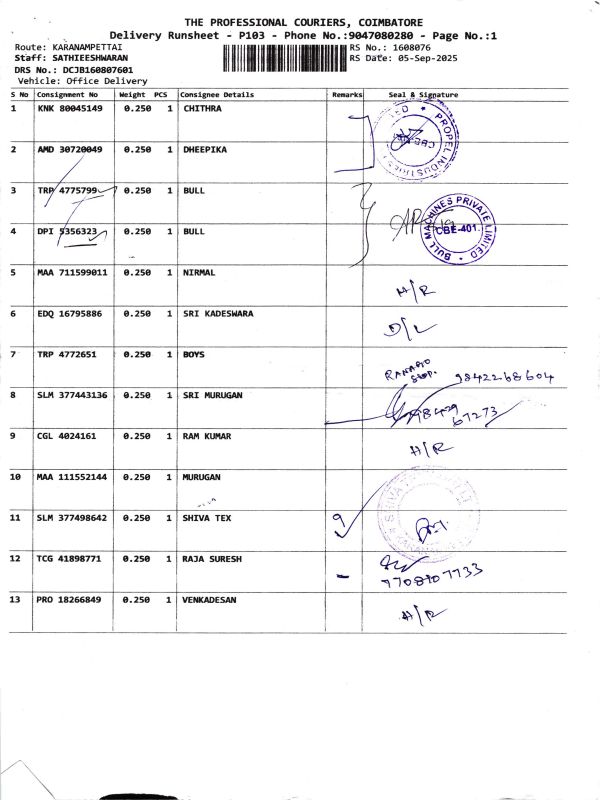 THE PROFESSIONAL COURIERS, COIMBATORE
Delivery Runsheet - P103 - Phone No.:9047080280 - Page No.:1
Route: KARANAMPETTAI RS No.: 1608076
Staff: SATHIEESHWARAN RS Date: 05-Sep-2025
DRS No.: DCJB160807601
Vehicle: Office Delivery
S No Consignment No Weight PCS Consignee Details Remarks Seal & Signature
1 KNK 80045149 0.250 1 CHITHRA
PROPEL INDUSTRIES
2 AMD 30720049 0.250 1 DHEEPIKA
3 TRP 4775799 0.250 1 BULL
BULL MACHINES PRIVATE LIMITED
CBE-401.
4 DPI 5356323 0.250 1 BULL
5 MAA 711599011 0.250 1 NIRMAL
H/R
6 EDQ 16795886 0.250 1 SRI KADESWARA
D/L
7 TRP 4772651 0.250 1 BOYS
9842268604
8 SLM 377443136 0.250 1 SRI MURUGAN
98429
67273
9 CGL 4024161 0.250 1 RAM KUMAR
H/R
10 MAA 111552144 0.250 1 MURUGAN
11 SLM 377498642 0.250 1 SHIVA TEX
9
12 TCG 41898771 0.250 1 RAJA SURESH
13 PRO 18266849 0.250 1 VENKADESAN
H/R